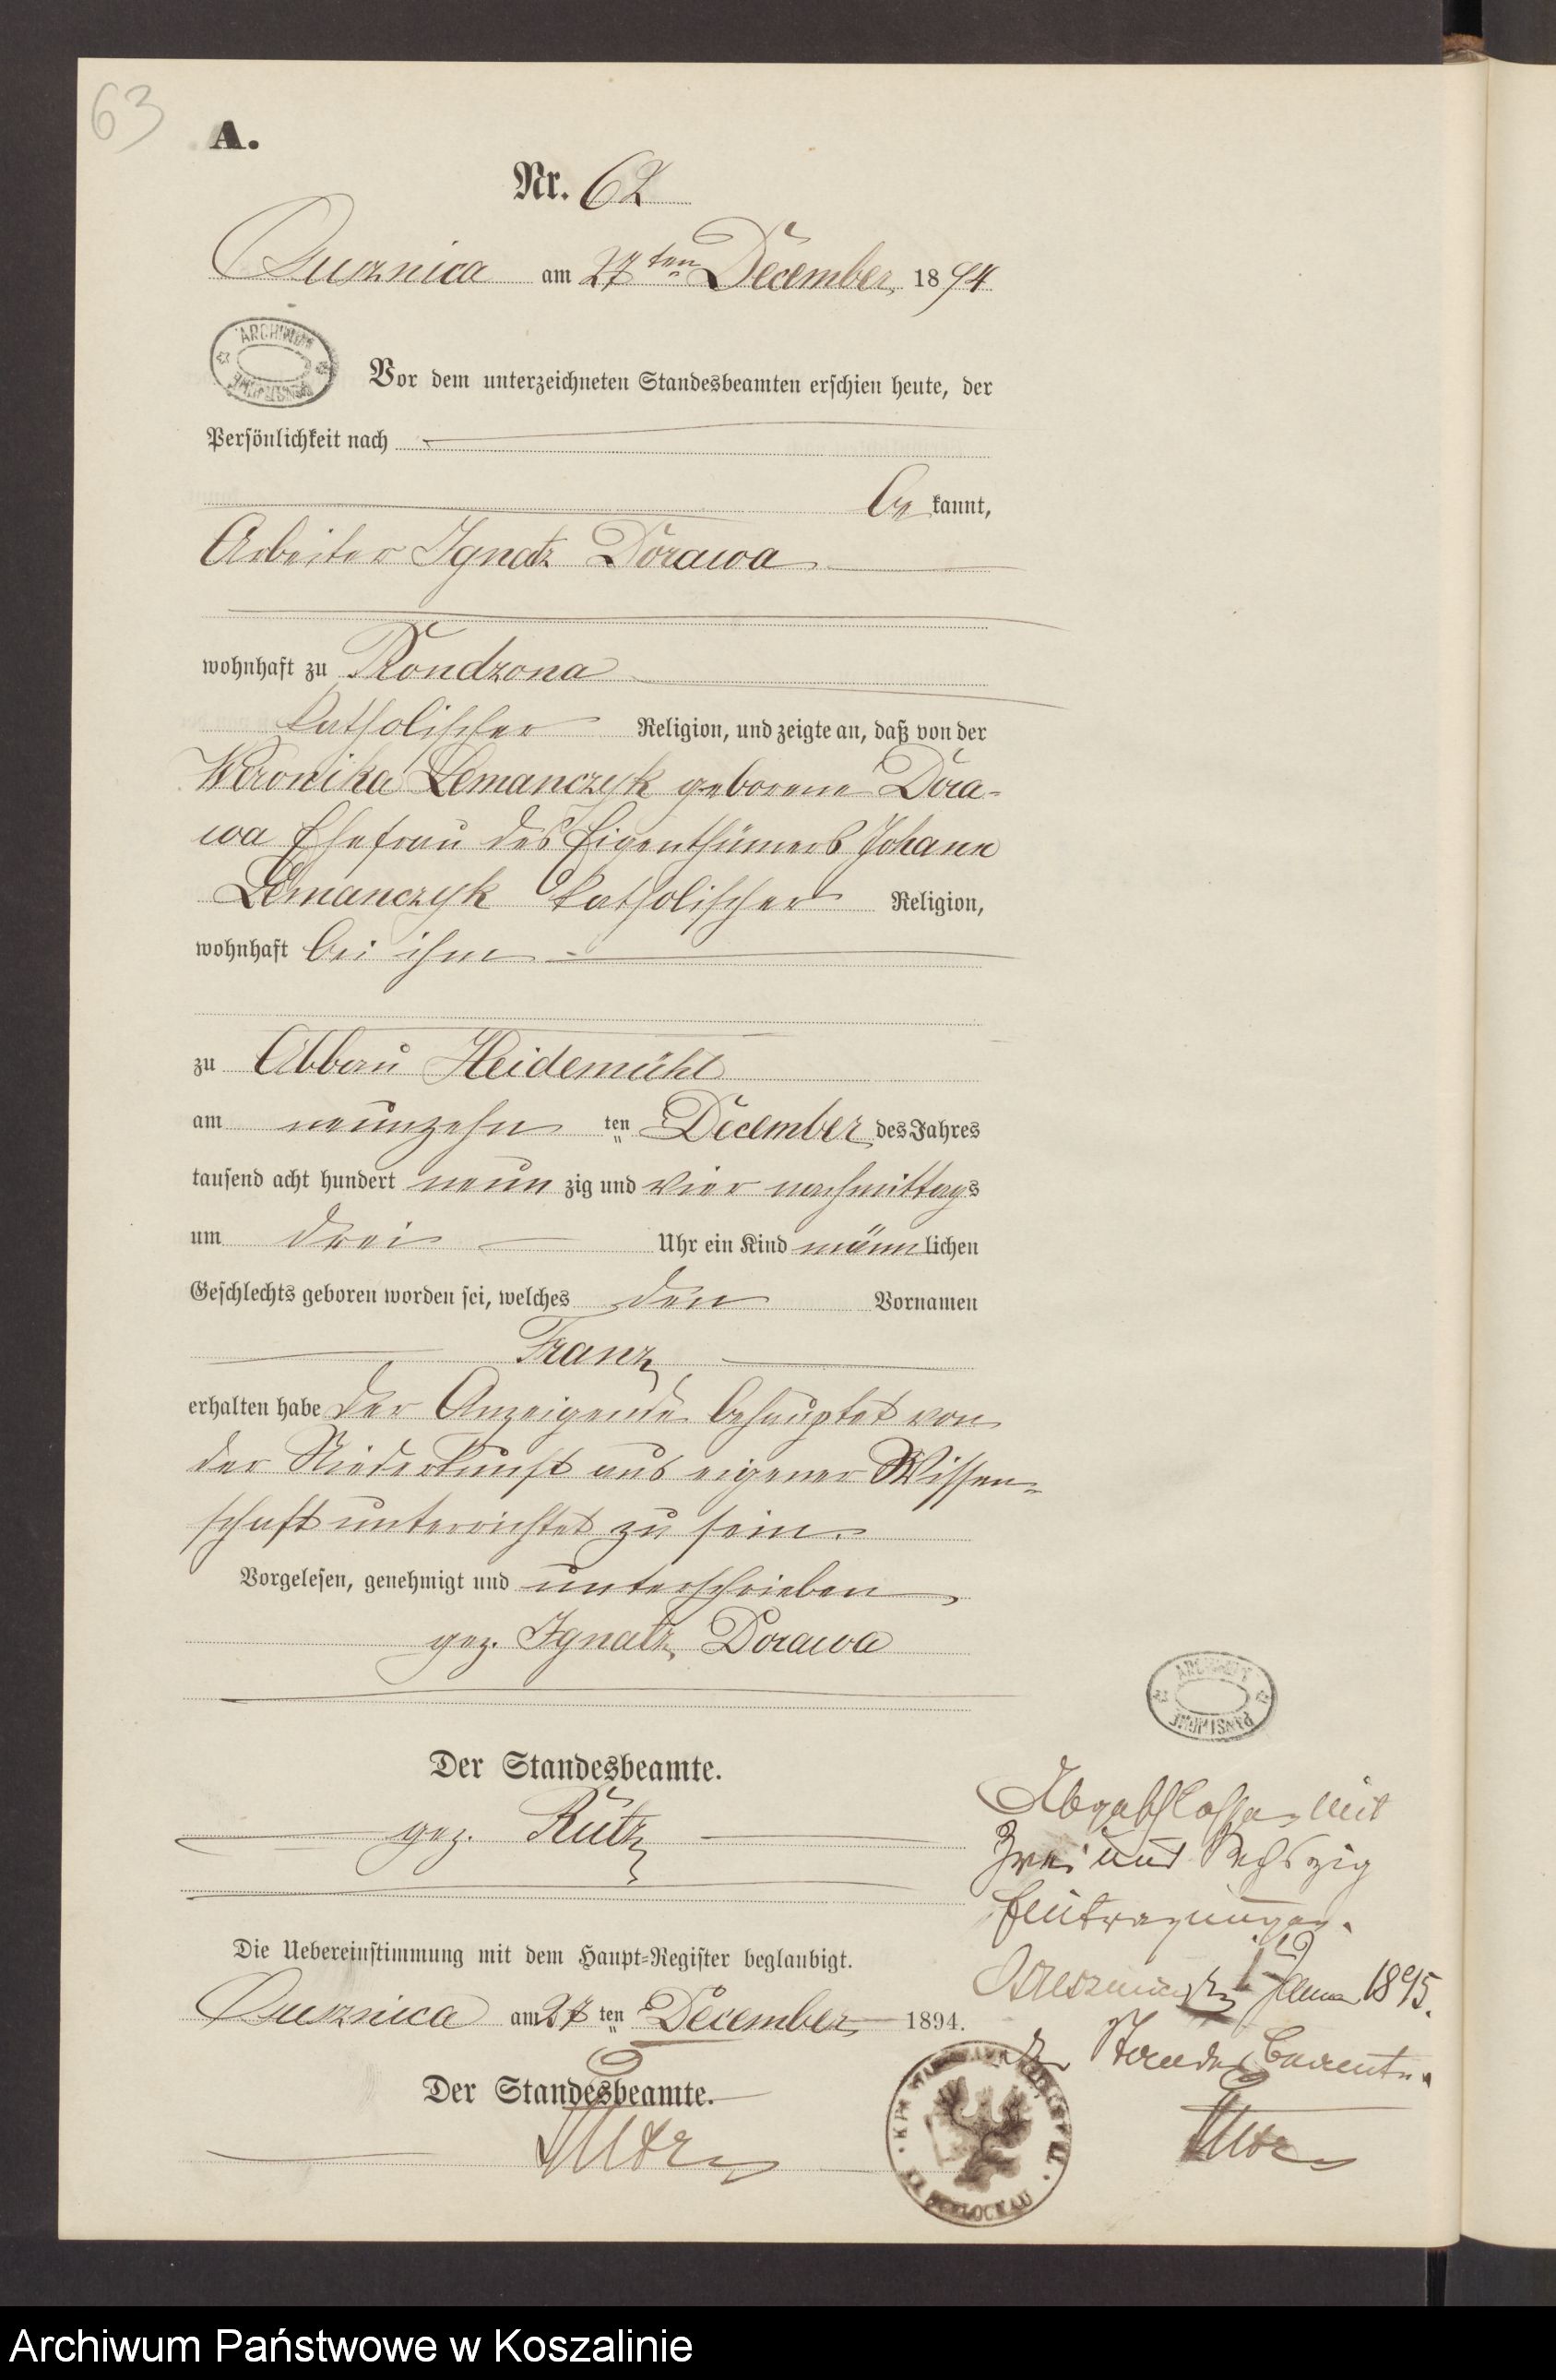 63
A.
Nr. 62
am 27ten December 1894
ARCHIWUM PAŃSTWOWE
Vor dem unterzeichneten Standesbeamten erschien heute, der
Persönlichkeit nach
be kannt,
Arbeiter Ignatz Dorawa
wohnhaft zu Rondzona
katholischer Religion, und zeigte an, daß von der
Weronika Lemanczyk geborene Dora-
wa Ehefrau des Eigenthümers Johann
Lemanczyk katholischer Religion,
wohnhaft bei ihm
zu Abbau Heidemühl
am neunzehn ten December des Jahres
tausend acht hundert neun zig und vier nachmittags
um drei Uhr ein Kind männ lichen
Geschlechts geboren worden sei, welches den Vornamen
Franz
erhalten habe der Anzeigende behauptet von
der Niederkunft aus eigener Wissen-
schaft unterrichtet zu sein.
Vorgelesen, genehmigt und unterschrieben
gez. Ignatz Dorawa
Der Standesbeamte.
gez. Rütz
Die Uebereinstimmung mit dem Haupt-Register beglaubigt.
am 27 ten December 1894.
Der Standesbeamte.
Rütz
ARCHIWUM PAŃSTWOWE
Abgeschlossen mit
zwei und sechszig
Eintragungen.
Januar 1895.
Der Standesbeamte.
Rütz
Archiwum Państwowe w Koszalinie